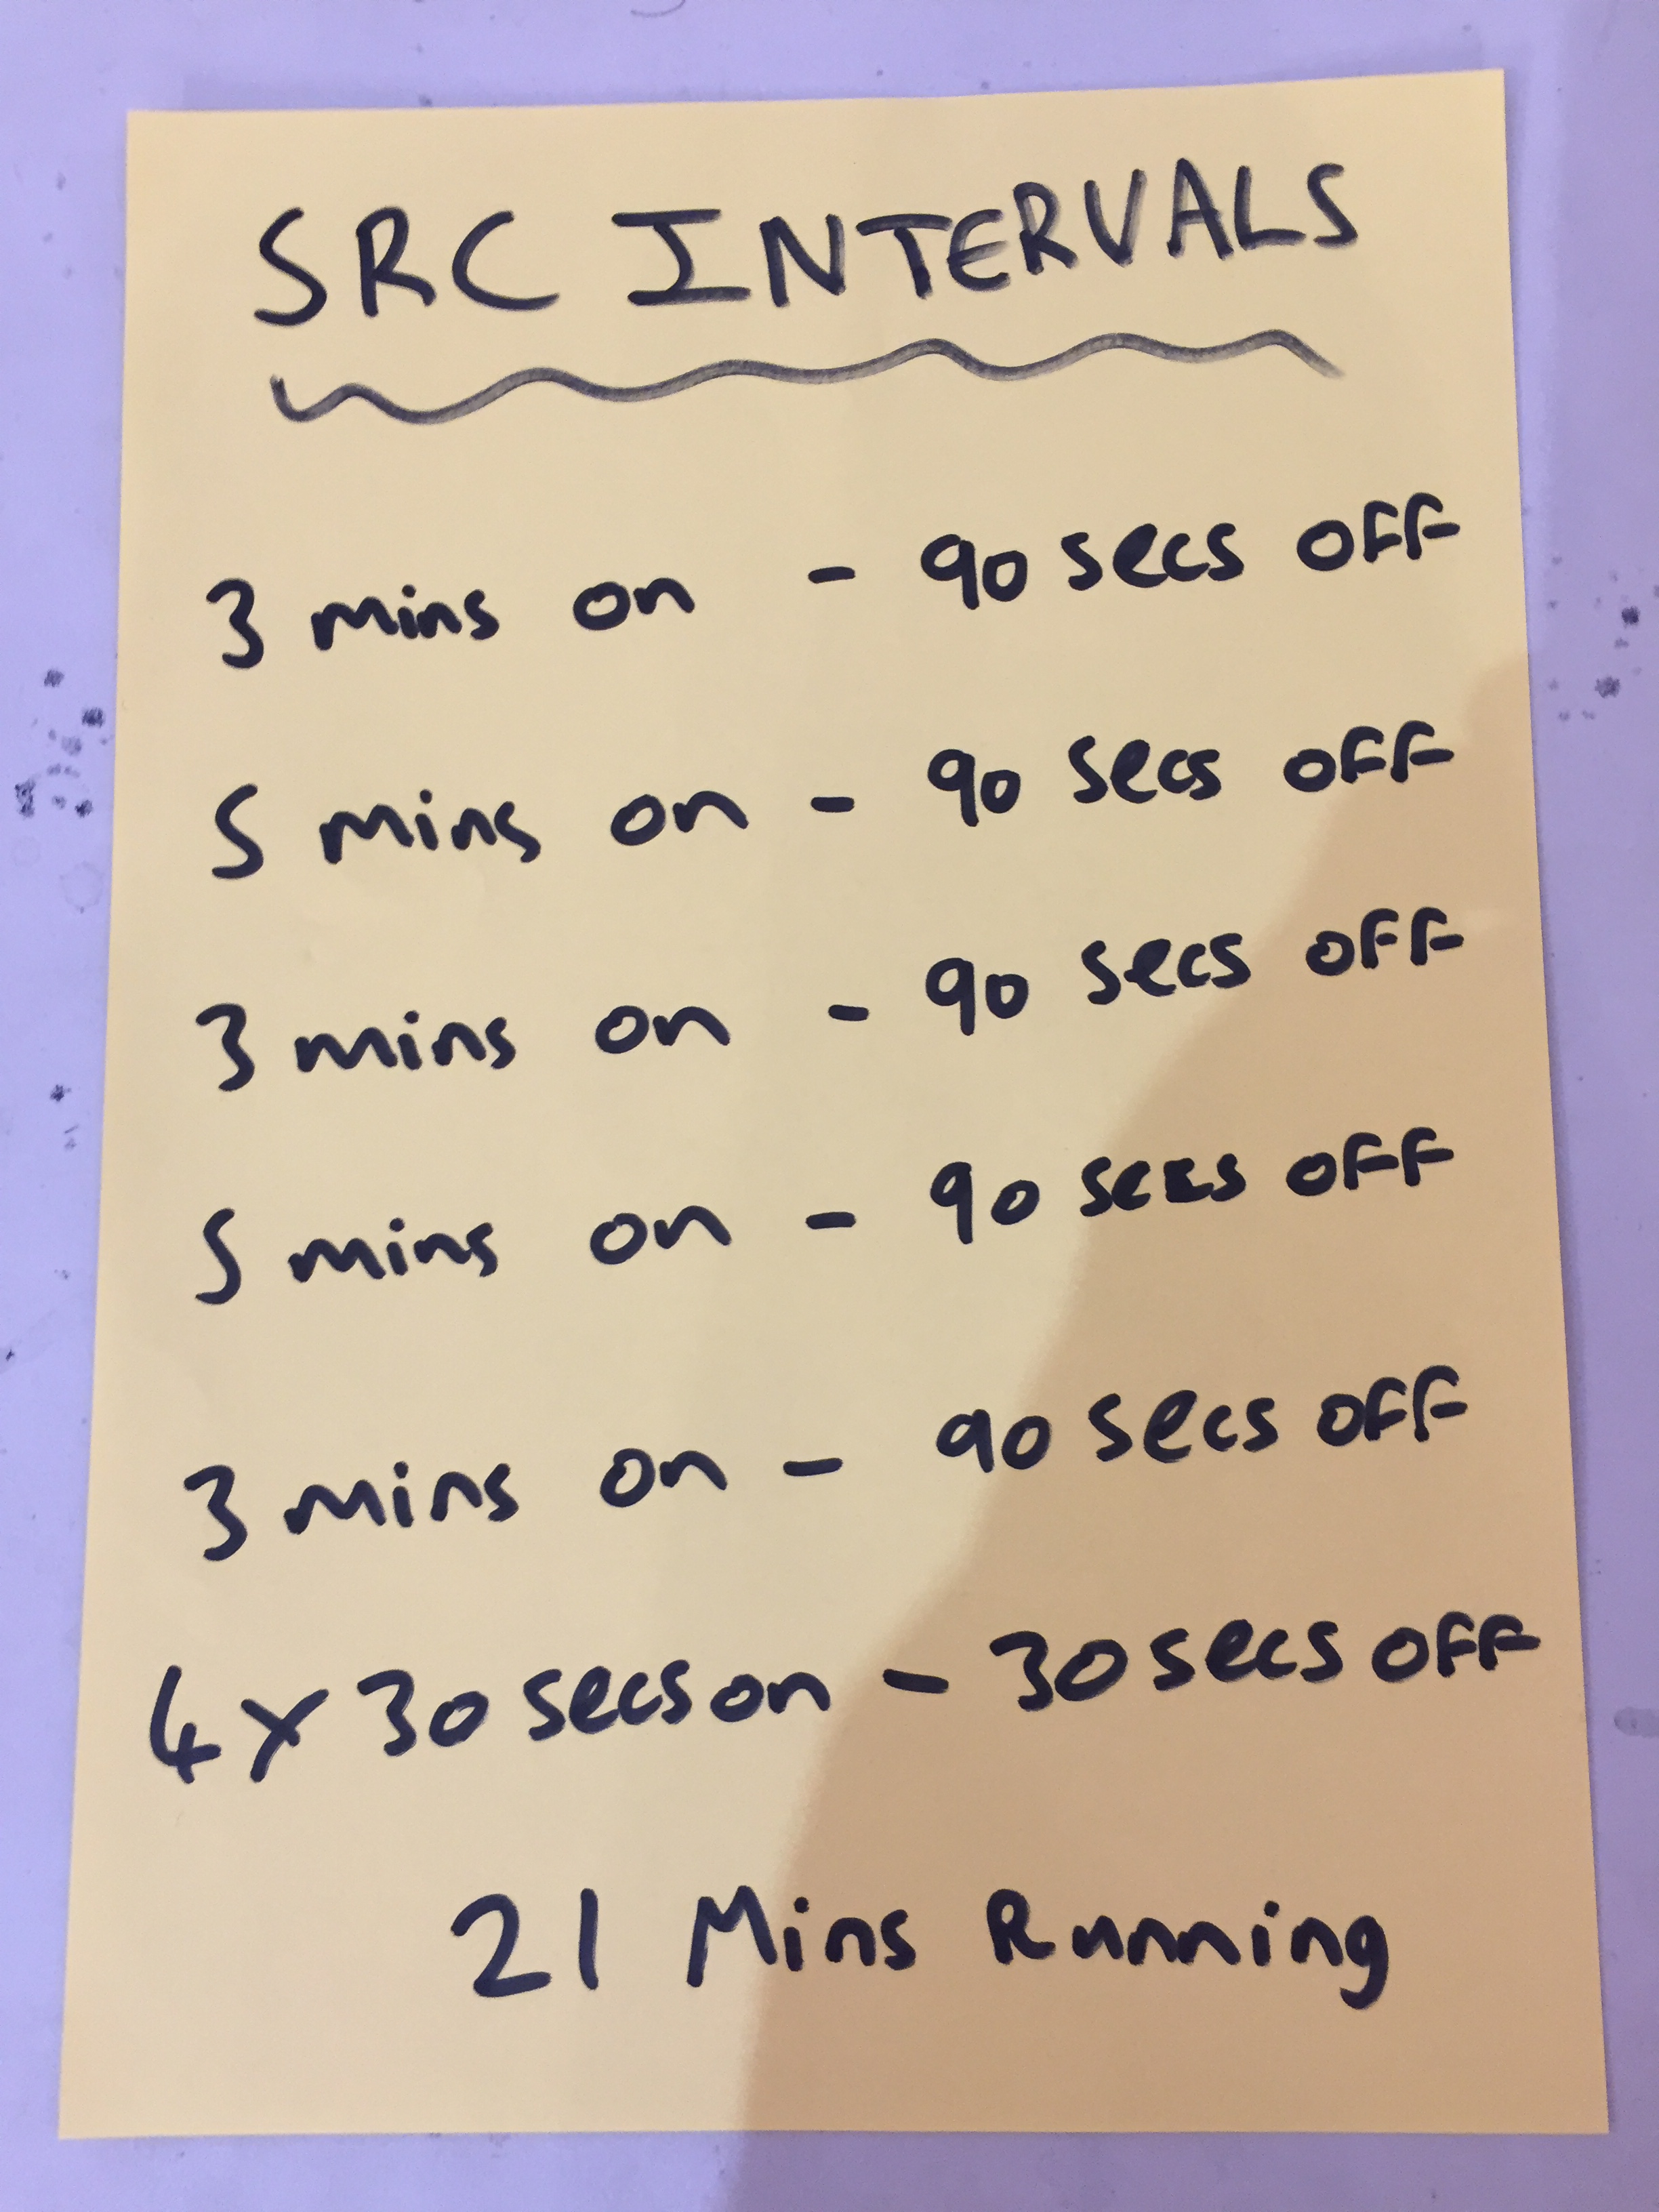 SRC INTERVALS
3 mins on - 90 secs off
5 mins on - 90 secs off
3 mins on - 90 secs off
5 mins on - 90 secs off
3 mins on - 90 secs off
4 x 30 secs on - 30 secs off
21 Mins Running